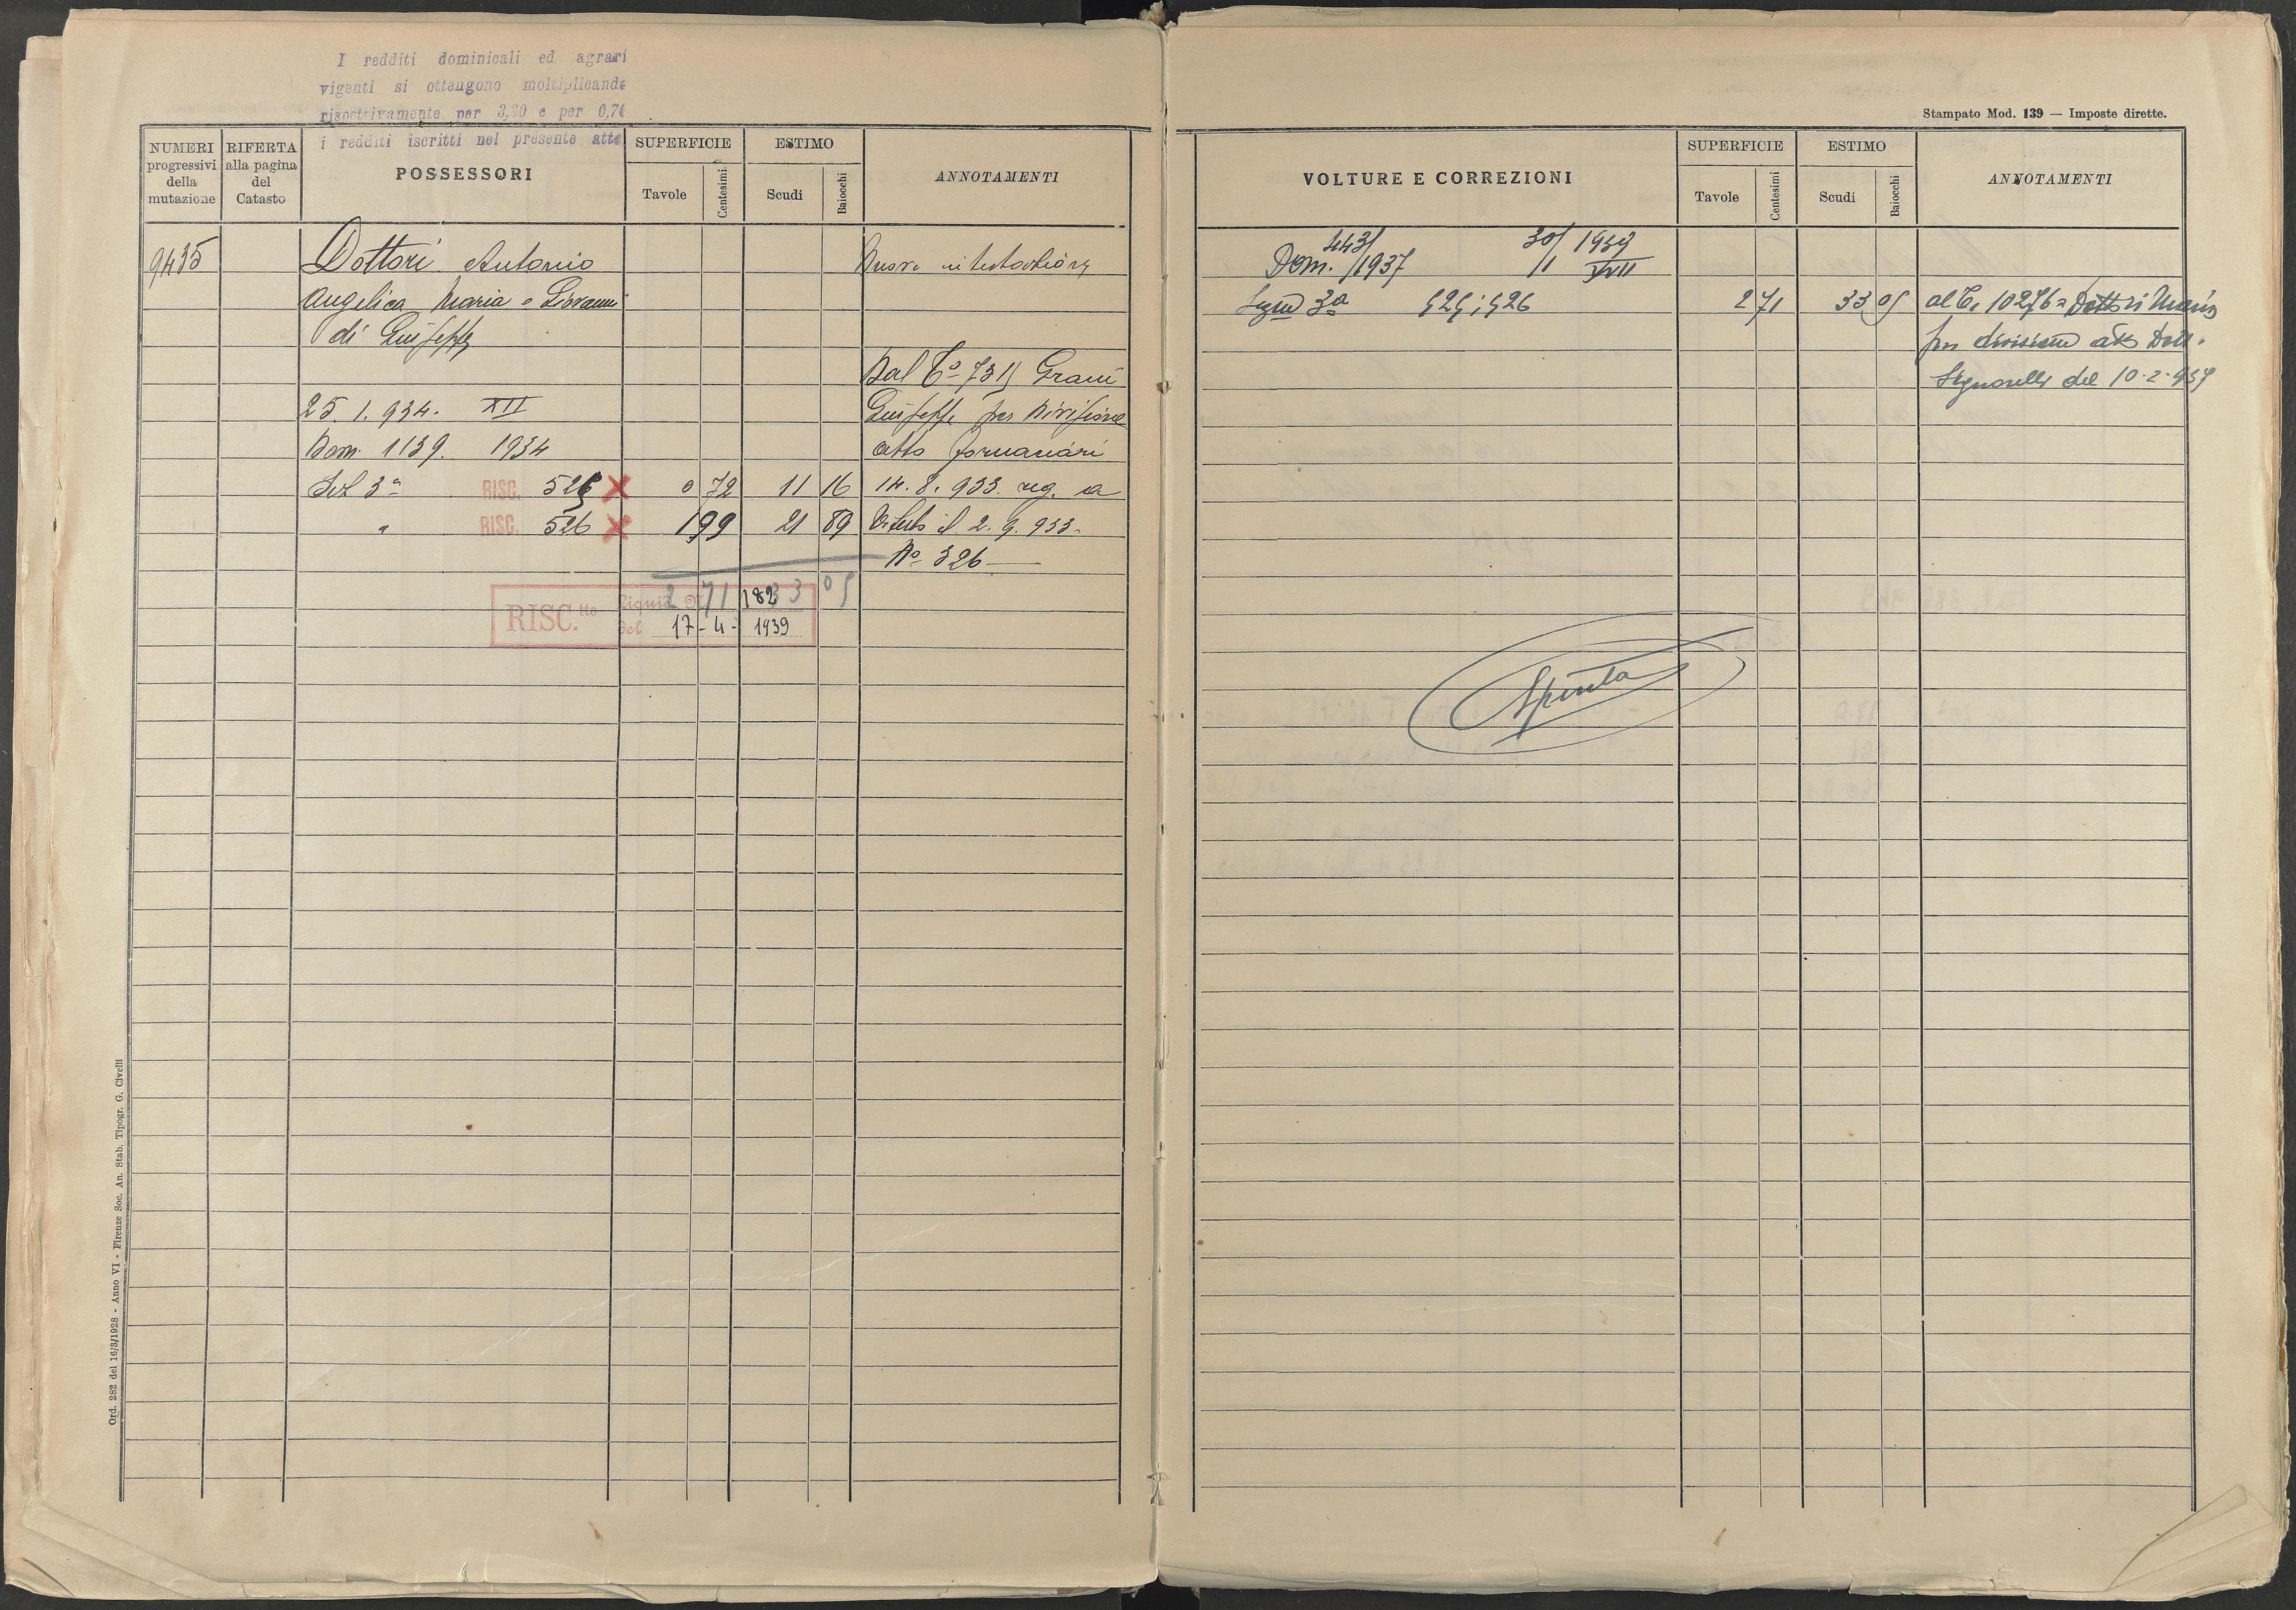 I redditi dominicali ed agrari
vigenti si ottengono moltiplicando
rispettivamente per 3,60 e per 0,70
i redditi iscritti nel presente atto
NUMERI progressivi della mutazione
RIFERTA alla pagina del Catasto
POSSESSORI
SUPERFICIE
Tavole
Centesimi
ESTIMO
Scudi
Baiocchi
ANNOTAMENTI
9435 Dottori Antonio Nuova intestazione
Angelica Maria e Giovanni
di Giuseppe
Dal
25.1.934. XII Giuseppe per divisione
Dom. 1139. 1934 atto
Sez 3ª RISC. 525 X 0 72 11 16 14.8.933 reg. a
" RISC. 526 X 1 99 21 89 Viterbo il 2.9.933.
Nº 326
2 71 33 05
RISC.tto Liquid. N 182
del 17-4-1939
Ord. 282 del 16/3/1928 - Anno VI - Firenze Soc. An. Stab. Tipogr. G. Civelli
Stampato Mod. 139 — Imposte dirette.
VOLTURE E CORREZIONI
SUPERFICIE
Tavole
Centesimi
ESTIMO
Scudi
Baiocchi
ANNOTAMENTI
Dom. 443/1937 30/1 1939 XVII
3ª 525; 526 2 71 33 05 al C. 10276 = Dottori Maria
per divisione atto Dott.
Signorelli del 10-2-937
Spunta